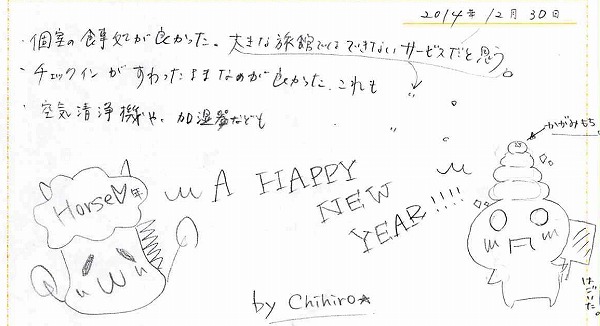 2014年 12月 30日
・個室の食事処が良かった。大きな旅館ではできないサービスだと思う。
・チェックインがすわったままなのが良かった、これも〃
・空気清浄機や、加湿器なども〃
かがみもち
Horse♡年
A HAPPY
NEW
YEAR!!!!
はごいた。
by Chihiro☆